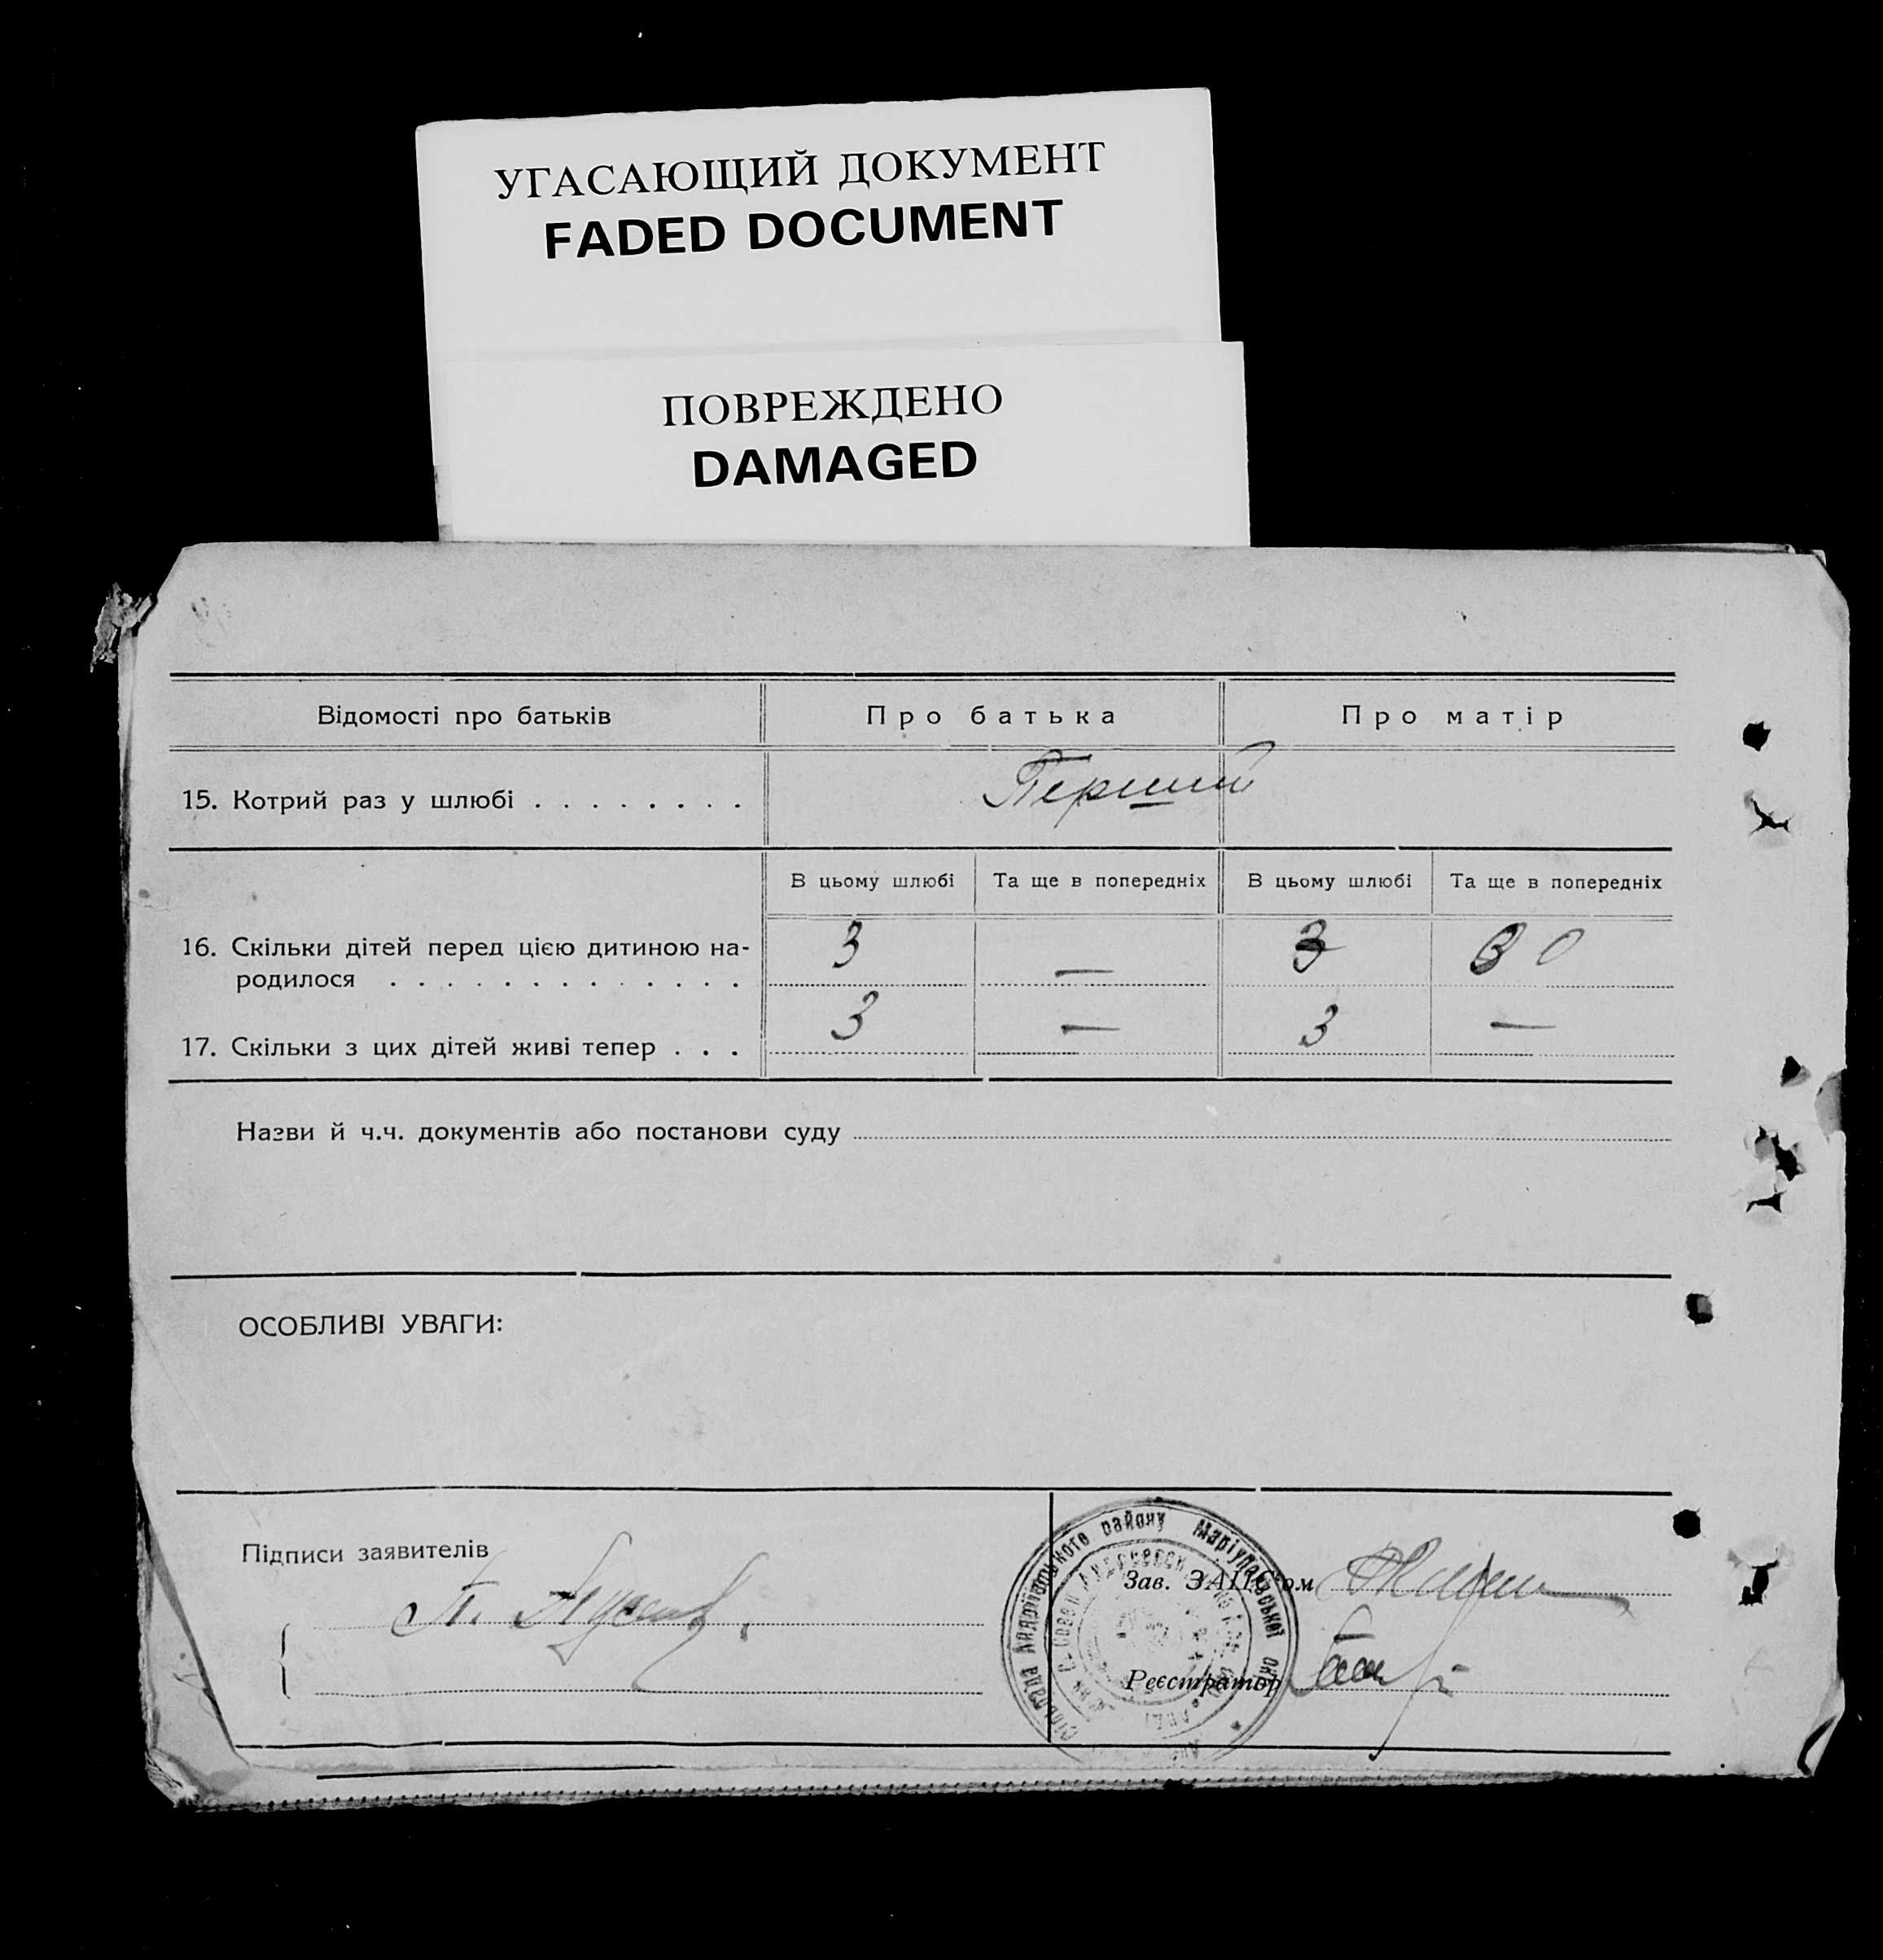 УГАСАЮЩИЙ ДОКУМЕНТ
FADED DOCUMENT
ПОВРЕЖДЕНО
DAMAGED
Відомості про батьків Про батька Про матір
15. Котрий раз у шлюбі . . . . . . . . Перший
В цьому шлюбі Та ще в попередніх В цьому шлюбі Та ще в попередніх
16. Скільки дітей перед цією дитиною на-
родилося . . . . . . . . . . . . . 3 — 3 0
17. Скільки з цих дітей живі тепер . . . 3 — 3 —
Назви й ч.ч. документів або постанови суду
ОСОБЛИВІ УВАГИ:
Підписи заявителів
Зав. ЗАГС'ом
Реєстратор
району Маріупольської окр.